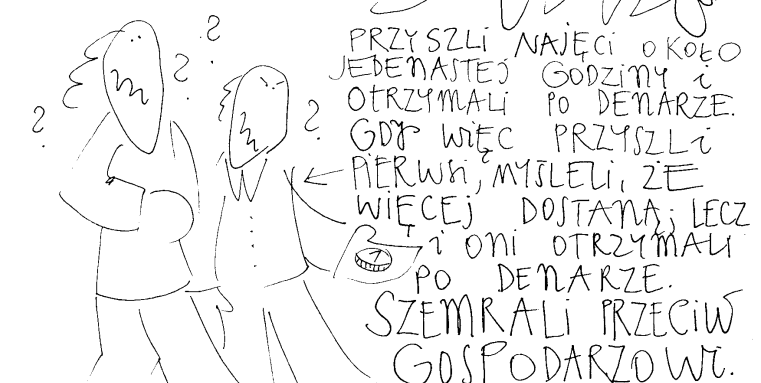 PRZYSZLI NAJĘCI OKOŁO
JEDENASTEJ GODZINY i
OTRZYMALI PO DENARZE.
GDY WIĘC PRZYSZLI
PIERWSI, MYŚLELI, ŻE
WIĘCEJ DOSTANĄ; LECZ
i ONI OTRZYMALI
PO DENARZE.
SZEMRALI PRZECIW
GOSPODARZOWI.
? ? ? ?
1